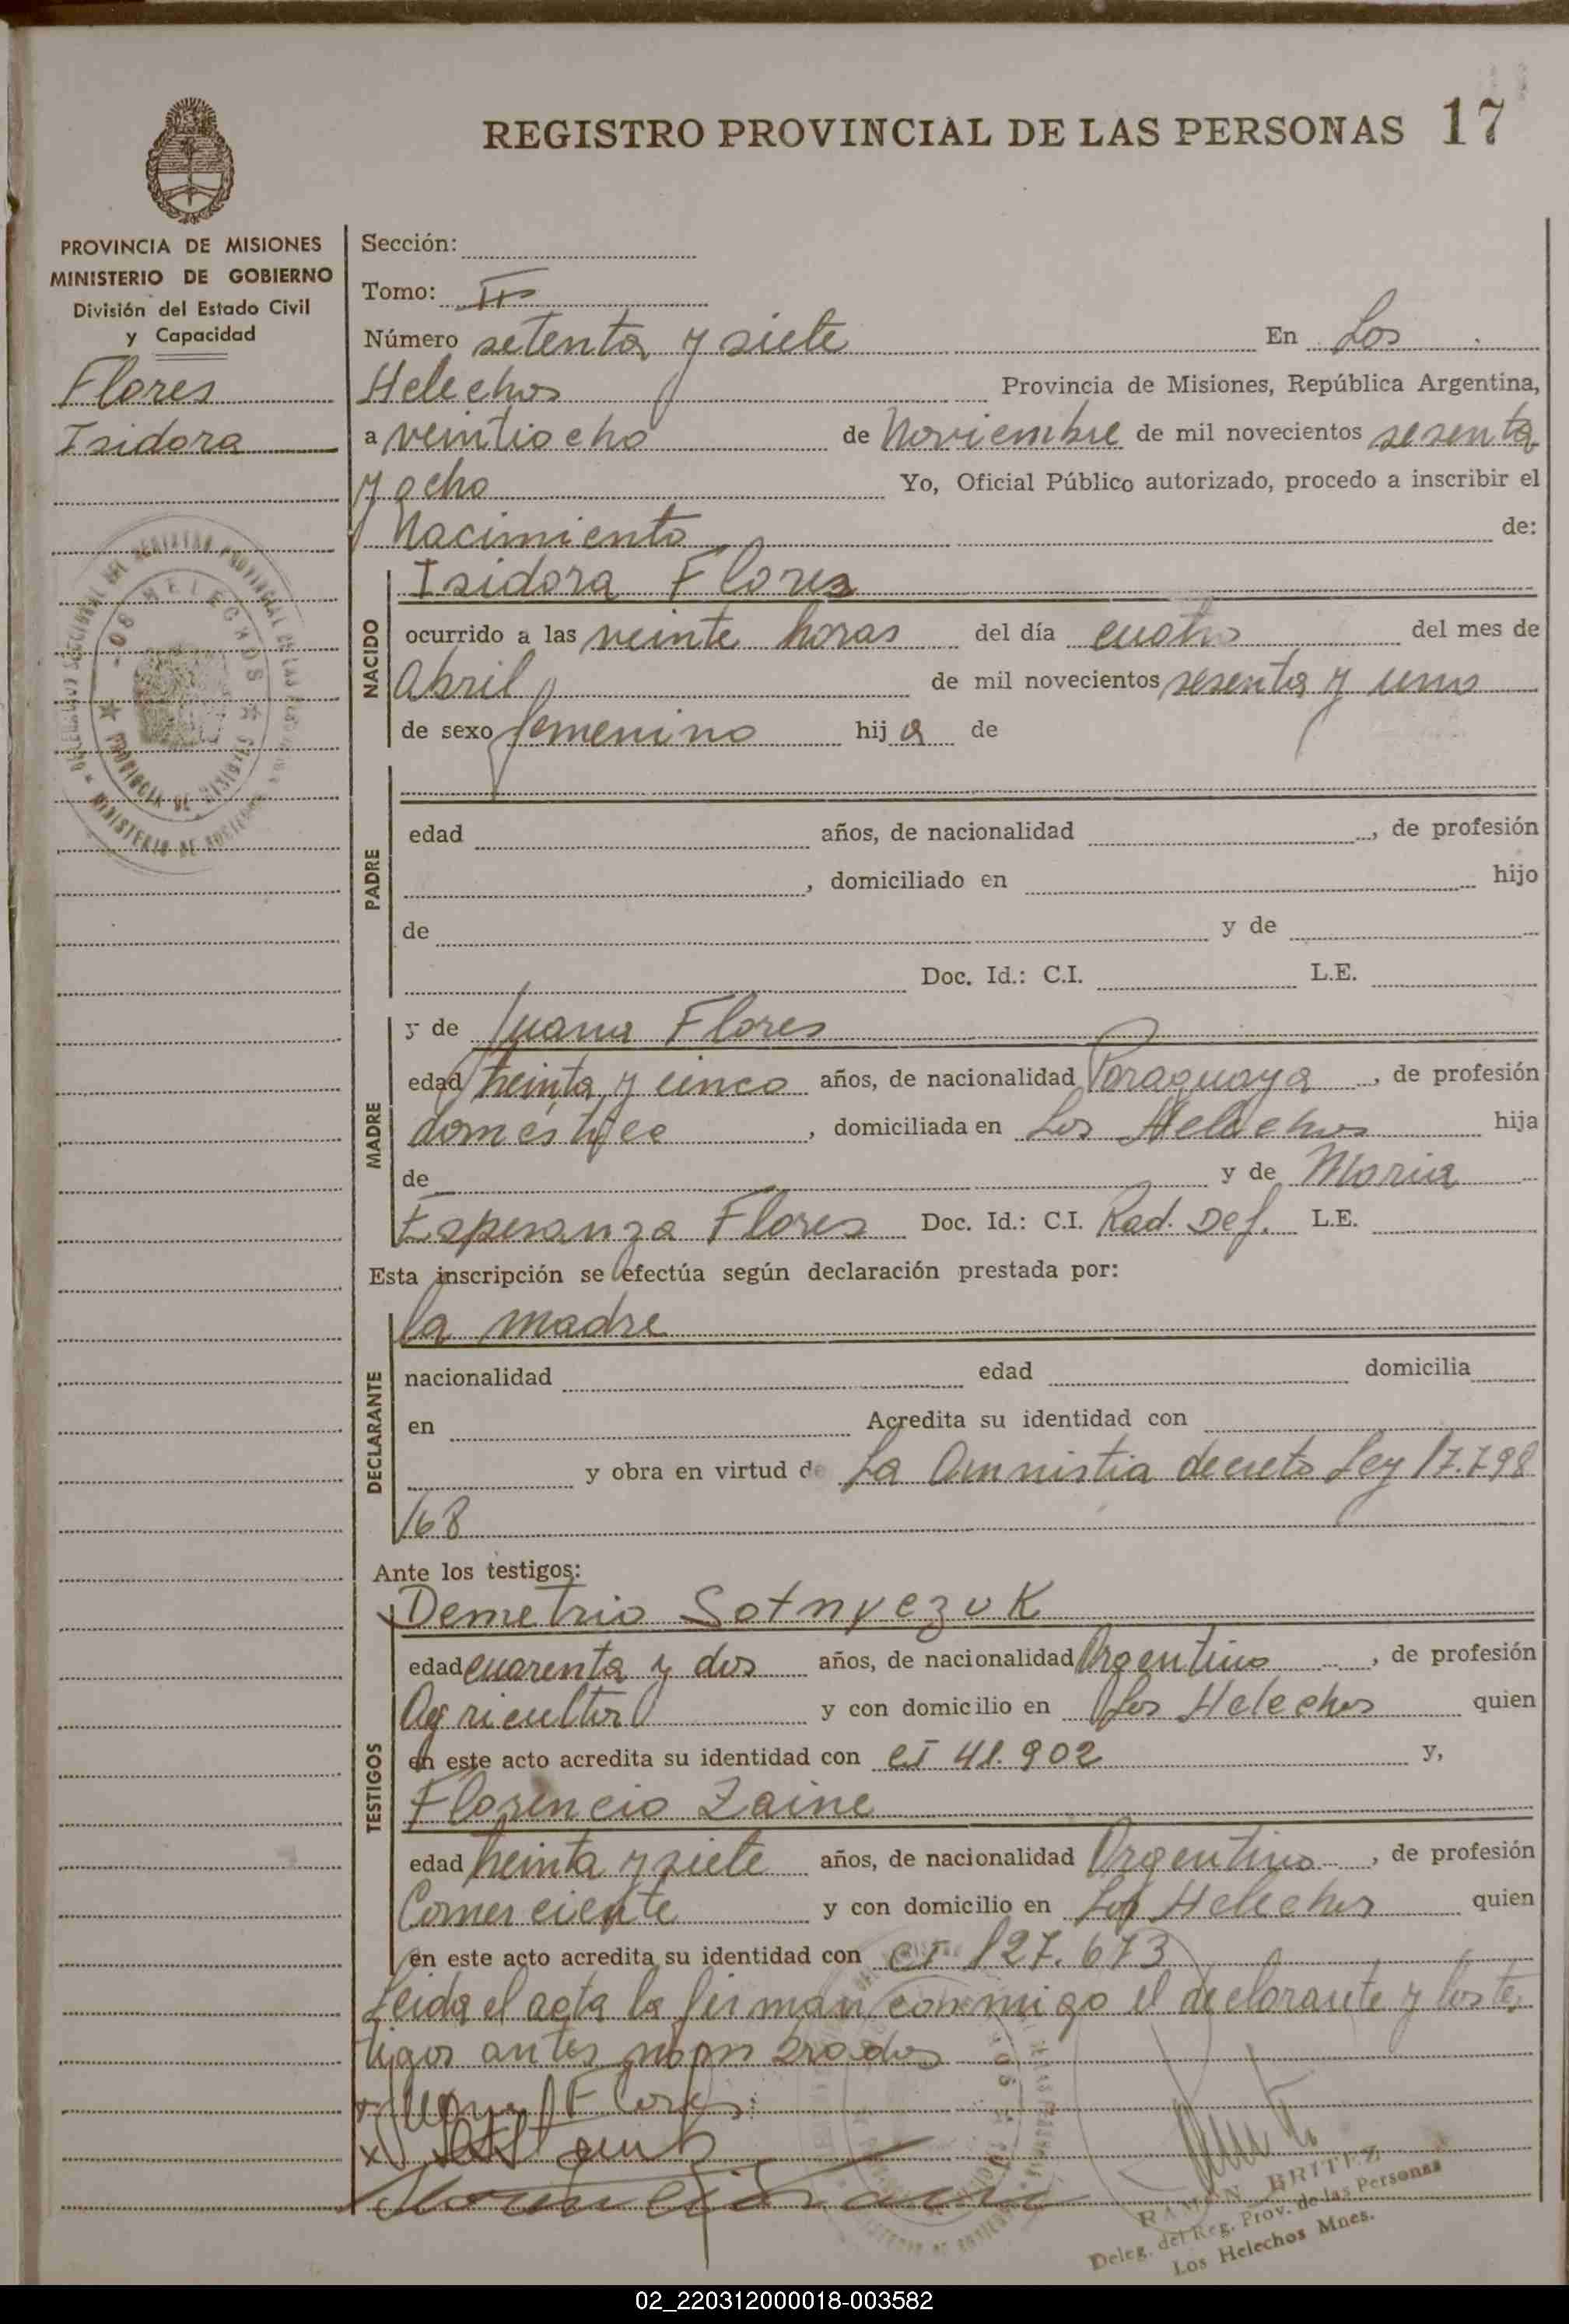 REGISTRO PROVINCIAL DE LAS PERSONAS 17
PROVINCIA DE MISIONES
MINISTERIO DE GOBIERNO
División del Estado Civil
y Capacidad
Flores
Isidora
Sección:
Tomo: II
Número setenta y siete En Los
Helechos Provincia de Misiones, República Argentina,
a veintiocho de Noviembre de mil novecientos sesenta
y ocho Yo, Oficial Público autorizado, procedo a inscribir el
Nacimiento de:
NACIDO
Isidora Flores
ocurrido a las veinte horas del día cuatro del mes de
Abril de mil novecientos sesenta y uno
de sexo femenino hij a de
PADRE
edad años, de nacionalidad , de profesión
, domiciliado en hijo
de y de
Doc. Id.: C.I. L.E.
MADRE
y de Juana Flores
edad treinta y cinco años, de nacionalidad Paraguaya , de profesión
doméstica , domiciliada en Los Helechos hija
de y de Maria
Esperanza Flores Doc. Id.: C.I. Rad. Def. L.E.
Esta inscripción se efectúa según declaración prestada por:
DECLARANTE
la madre
nacionalidad edad domicilia
en Acredita su identidad con
y obra en virtud de La Amnistia decreto Ley 17.798
/68
Ante los testigos:
TESTIGOS
Demetrio Sotnyczuk
edad cuarenta y dos años, de nacionalidad Argentino , de profesión
Agricultor y con domicilio en Los Helechos quien
en este acto acredita su identidad con CI 41.902 y,
Florencio Zaine
edad treinta y siete años, de nacionalidad Argentino , de profesión
Comerciente y con domicilio en Los Helechos quien
en este acto acredita su identidad con CI 127.673
Leida el acta la firman conmigo el declarante y los tes
tigos antes nombrados
Flores
RAMÓN BRITEZ
Deleg. del Reg. Prov. de las Personas
Los Helechos Mnes.
02_220312000018-003582